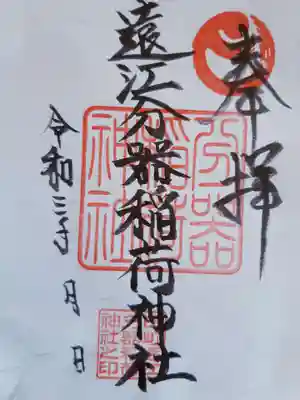 奉拝
遠江分器稲荷神社
令和三年 月 日
分器
稲荷
神社
神社之印